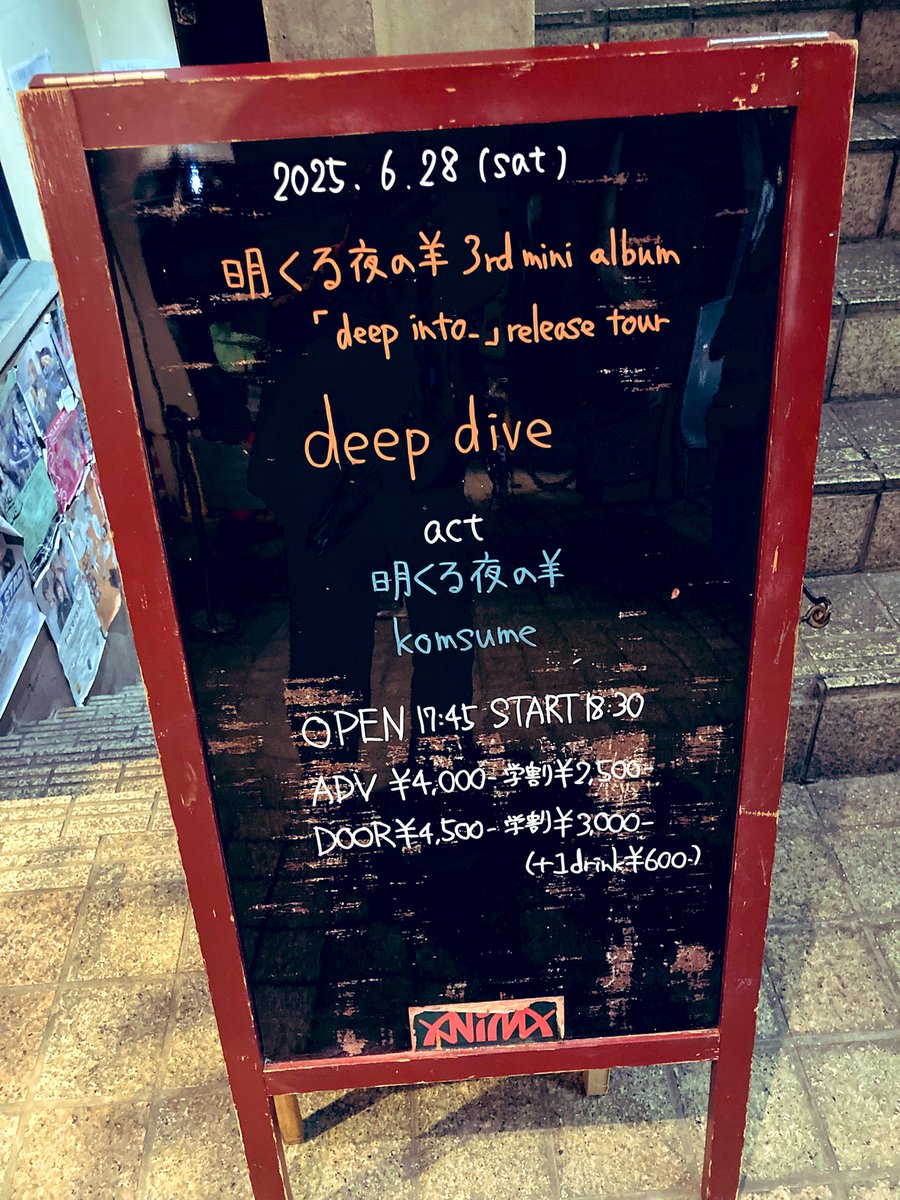 2025.6.28 (sat)
明くる夜の羊 3rd mini album
「deep into_」release tour
deep dive
act
明くる夜の羊
komsume
OPEN 17:45 START 18:30
ADV ¥4,000- 学割¥2,500-
DOOR¥4,500- 学割¥3,000-
(+1drink¥600-)
ANIMA